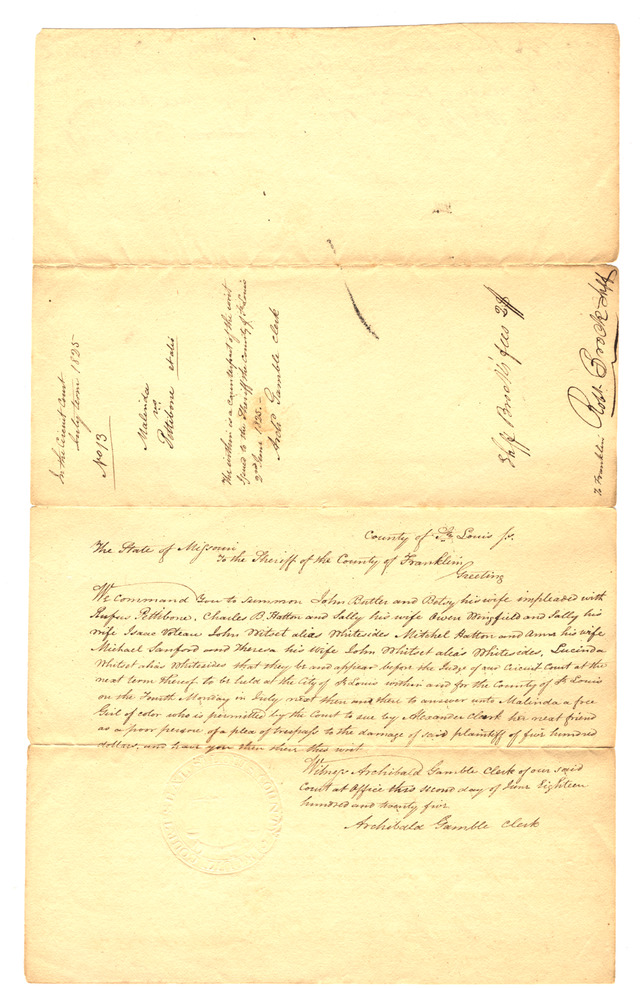 In the Circuit Court
July term 1825
No 13
Malinda
vs
Pettibone et alii
The within is a counterpart of the writ
issued to the Sheriff the County of St Louis
2d June 1825.
Archd Gamble Clerk
Shff Brock's fees
To Franklin Robt Brock Shff
County of St Louis Ss.
The State of Missouri
To the Sheriff of the County of Franklin
Greeting
We command You to summon John Butler and Betsy his wife impleaded with
Rufus Pettibone, Charles B. Hatton and Sally his wife Owen Wingfield and Sally his
wife Isaac Voteau John Witset alias Whitesides Mitchel Hatton and Anna his wife
Michael Sanford and Theresa his Wife John Whitset alias Whitesides, Lucinda
Whitset alias Whitesides that they be and appear before the Judge of our Circuit Court at the
next term thereof to be held at the City of St Louis within and for the County of St Louis
on the Fourth Monday in July next then and there to answer unto Malinda a free
Girl of color who is permitted by the Court to sue by Alexander Clark her next friend
as a poor person of a plea of trespass to the damage of said plaintiff of five hundred
dollars, and have you then there this writ
Witness Archibald Gamble Clerk of our said
Court at Office this second day of June Eighteen
hundred and twenty five
Archibald Gamble Clerk